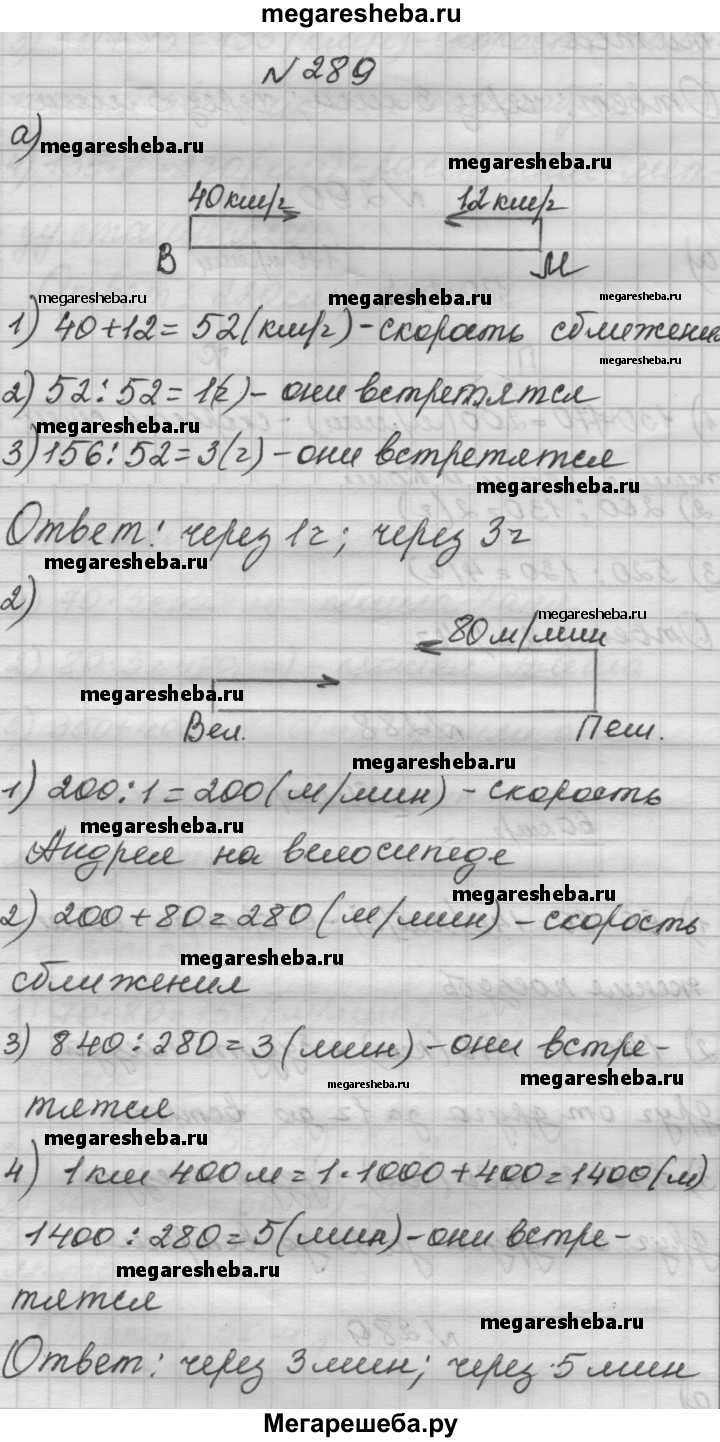 megaresheba.ru
№289
а)
megaresheba.ru
megaresheba.ru
40км/ч 12км/ч
В М
megaresheba.ru megaresheba.ru megaresheba.ru
1) 40+12= 52(км/ч)-скорость сближения
megaresheba.ru
2) 52:52=1(ч)- они встретятся
megaresheba.ru
3)156:52=3(ч)-они встретятся
megaresheba.ru
Ответ: через 1ч; через 3ч
megaresheba.ru
2)
megaresheba.ru
80м/мин
megaresheba.ru
Вел. Пеш.
megaresheba.ru
1) 200:1=200(м/мин)-скорость
megaresheba.ru
Андрея на велосипеде
megaresheba.ru
2) 200+80=280(м/мин)-скорость
megaresheba.ru
сближения
3) 840:280=3(мин)-они встре-
megaresheba.ru megaresheba.ru
тятся
megaresheba.ru
4) 1км 400м=1·1000+400=1400(м)
1400:280=5(мин)-они встре-
megaresheba.ru
тятся
megaresheba.ru
Ответ: через 3мин; через 5мин
Мегарешеба.ру